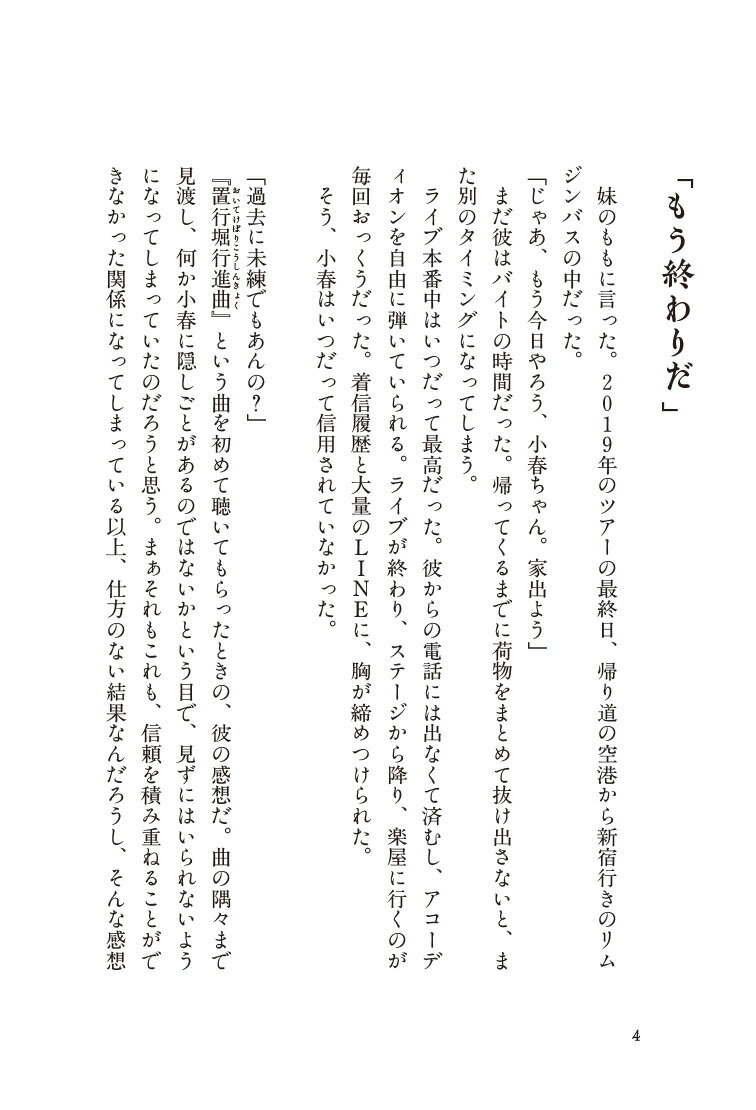 「もう終わりだ」
妹のももに言った。2019年のツアーの最終日、帰り道の空港から新宿行きのリム
ジンバスの中だった。
「じゃあ、もう今日やろう、小春ちゃん。家出よう」
まだ彼はバイトの時間だった。帰ってくるまでに荷物をまとめて抜け出さないと、ま
た別のタイミングになってしまう。
ライブ本番中はいつだって最高だった。彼からの電話には出なくて済むし、アコーデ
ィオンを自由に弾いていられる。ライブが終わり、ステージから降り、楽屋に行くのが
毎回おっくうだった。着信履歴と大量のLINEに、胸が締めつけられた。
そう、小春はいつだって信用されていなかった。
「過去に未練でもあんの?」
『置行堀行進曲』という曲を初めて聴いてもらったときの、彼の感想だ。曲の隅々まで
おいてけぼりこうしんきょく
見渡し、何か小春に隠しごとがあるのではないかという目で、見ずにはいられないよう
になってしまっていたのだろうと思う。まぁそれもこれも、信頼を積み重ねることがで
きなかった関係になってしまっている以上、仕方のない結果なんだろうし、そんな感想
4